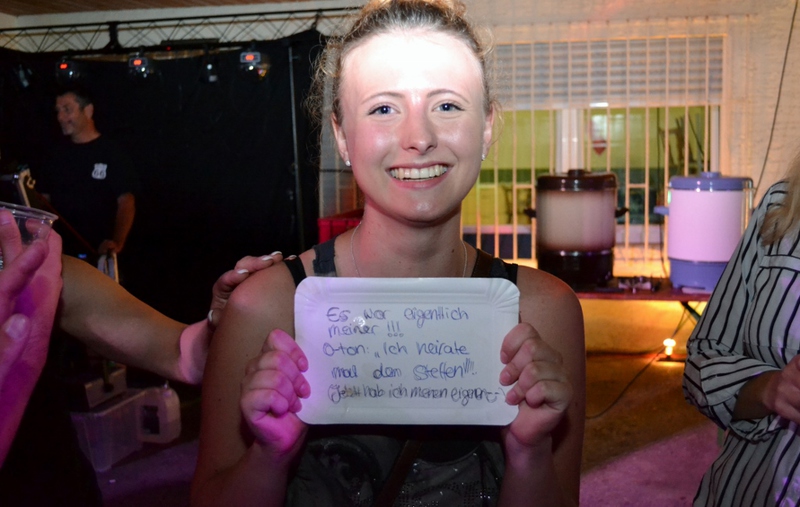 Es war eigentlich
meiner !!!
O-ton: „Ich heirate
mal den Steffen"!!!
Jetzt hab ich meinen eigenen :-)